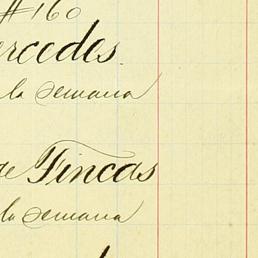 #160
rcedes.
la semana
de Fincas
la semana